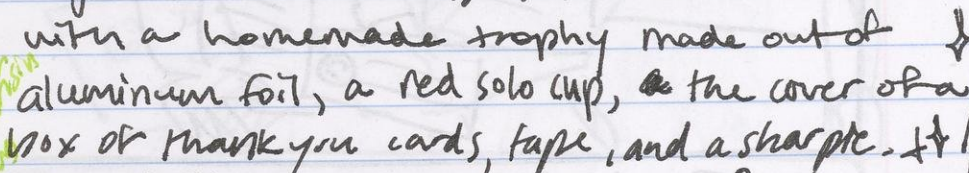 with a homemade trophy made out of
aluminum foil, a red solo cup, the cover of a
box of thank you cards, tape, and a sharpie.